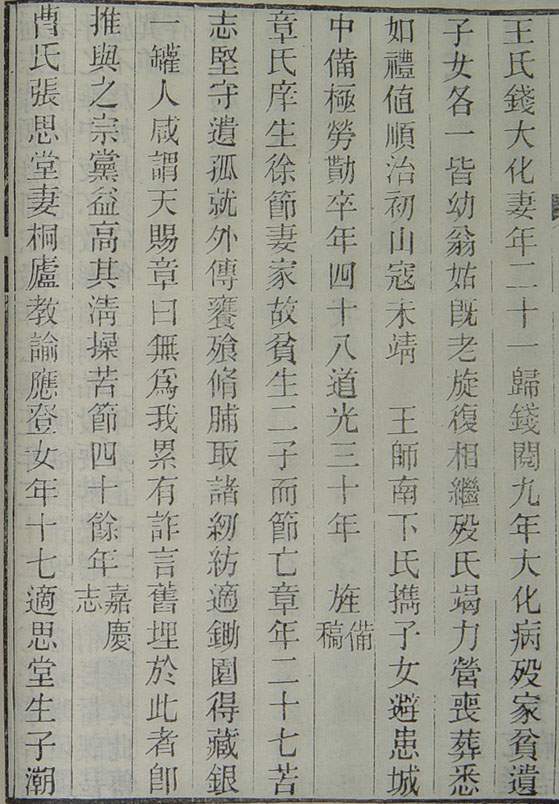 王氏錢大化妻年二十一歸錢閱九年大化病歿家貧遺
子女各一皆幼翁姑旣老旋復相繼歿氏竭力營喪葬悉
如禮值順治初山寇未靖　王師南下氏攜子女避患城
中備極勞勩卒年四十八道光三十年　旌備稿
章氏庠生徐節妻家故貧生二子而節亡章年二十七苦
志堅守遺孤就外傅饔飧脩脯取諸紉紡適鋤園得藏銀
一罐人咸謂天賜章曰無爲我累有詐言舊埋於此者卽
推與之宗黨益高其淸操苦節四十餘年嘉慶志
曹氏張思堂妻桐廬教諭應登女年十七適思堂生子潮